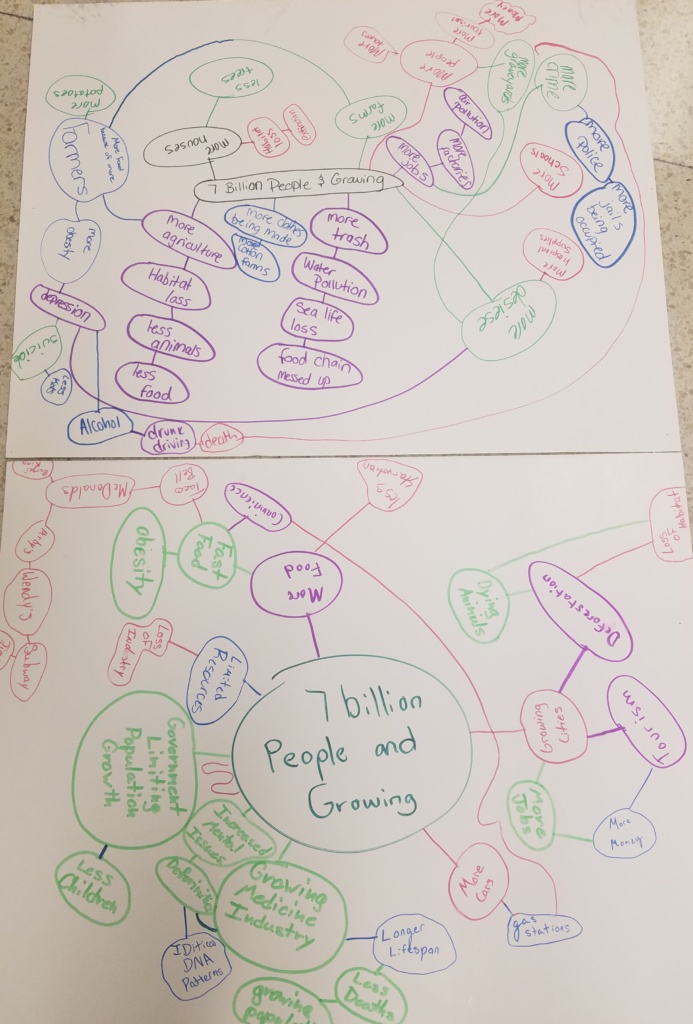 Heavy
More
more
tourism
More
people
More
towers
more
graveyards
more
crime
less
trees
more
potatoes
Farmers
More food
because of more
more
houses
Habitat
loss
more
farms
air
pollution
more
factories
more jobs
more
Police
more
jail's
being
occupied
More
Schools
More
hospital
supplies
more
disease
7 Billion People & Growing
more
agriculture
Habitat
loss
less
animals
less
food
more clothes
being made
more
cotton
farms
more
trash
Water
Pollution
Sea life
loss
food chain
messed up
more
obesity
depression
suicide
Less
kids
Alcohol
drunk
driving
death
Burger
King
McDonalds
Taco
Bell
Arby's
Wendy's
Subway
Convinience
Less
Starvation
Fast
Food
obesity
More
Food
Loss to
Habitat
Dying
Animals
Deforestation
Loss
OF
Industry
Limited
Resources
7 billion
People and
Growing
Cities
Growing
Tourism
More
Jobs
More
Money
Government
Limiting
Population
Growth
Less
Children
Increased
Mental
Issues
Deformities
IDitical
DNA
Patterns
Growing
Medicine
Industry
Longer
Lifespan
Less
Deaths
growing
population
More
Cars
gas
stations